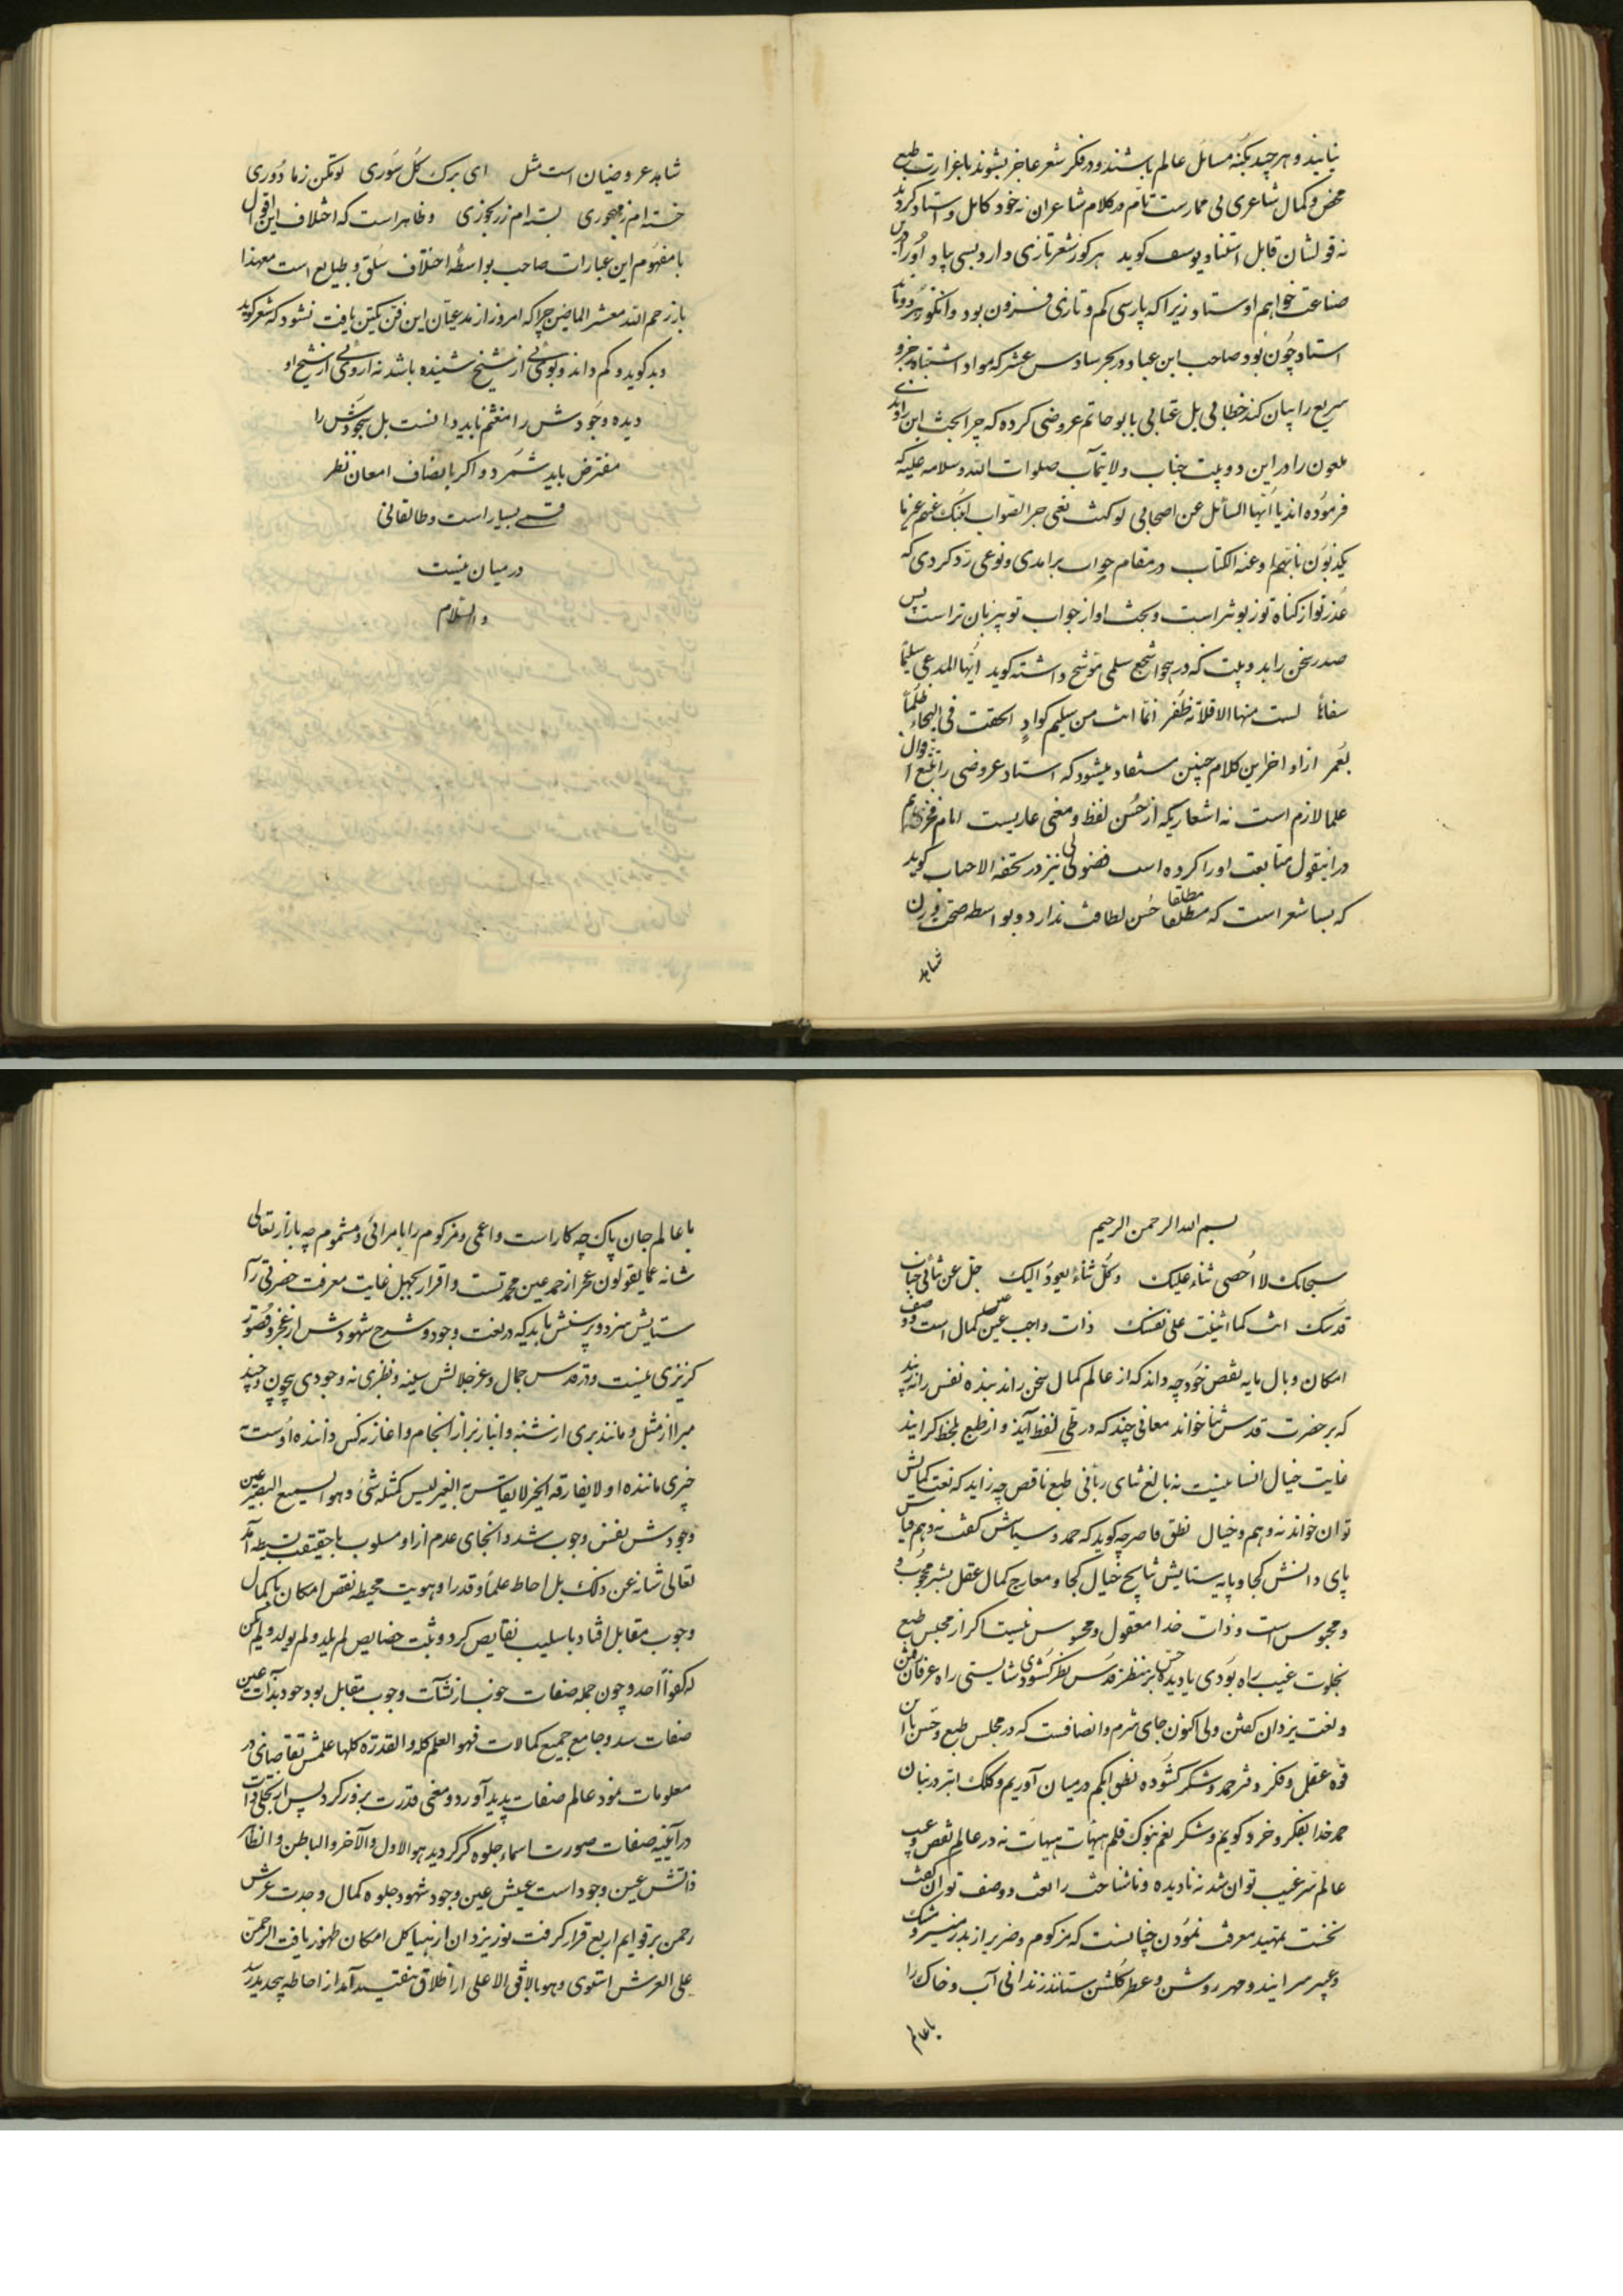 نیابند و هر چند بکنه مسائل عالم باشند و در فکر شعر عاجز نشوند با غزارت طبع
محض و کمال شاعری بی ممارست تام در کلام شاعران نه خود کامل و استاد کردند
نه قولشان قابل استناد یوسف کوید هر کو ز شعر تازی دارد بسی بیاد او را درین
صناعت خواهم اوستاد زیرا که پارسی کم و تازی فزون بود وانکو
استاد چون بود صاحب ابن عباد در بحر سادس عشر که مواد اشتباه جزو
سریع را بیان کند خطابی بل عتابی بابو حاتم عروضی کرده که چرا بحث ابن راوندی
ملعون را در این دو بیت جناب ولایتمآب صلوات الله و سلامه علیه که
فرموده اند یا ایها السائل عن اصحابی لو کنت تبغی خبر الصواب
در مقام جواب برامدی و نوعی رد کردی که
عذر تو از کناه تو زبونتر است و بحث او از جواب تو پیز بان تر است پس
صدر سخن را بدو بیت که در هجو اشجع سلمی موشح داشته کوید ایها المدعی سلیما
سفاها لست منها الا قلامة ظفر انما انت من سلیم کواو الحقت فی الهجاء ظلما
بعمر از اواخر این کلام چنین مستفاد میشود که استاد عروضی را تتبع اقوال
علما لازم است نه اشعاریکه از حسن لفظ و معنی عاریست امام فخر هم
در اینقول متابعت او را کرده است فضولی نیز در تحفه الاحباب کوید
که بسا شعر است که مطلقا حسن لطافت ندارد و بواسطه صحت وزن
شاهد
شاهد عروضیان است مثل ای برک کل سوری تو مکن ز ما دوری
خسته ام ز مهجوری بسته ام ز رنجوری و ظاهر است که اختلاف این اقوال
با مفهوم این عبارات صاحب بواسطه اختلاف سلق و طبایع است معهذا
باز رحم الله معشر الماضین چرا که امروز از مدعیان این فن یکتن یافت نشود که شعر کوید
و بد کوید و کم داند و بوئی از شیخ شنیده باشد نه از وی از شیخ او
دیده وجودش را مغتنم باید دانست بل سجودش را
مفترض باید شمرد و اگر بانصاف امعان نظر
بسیار است و طالقانی
در میان نیست
والسلام
بسم الله الرحمن الرحیم
سبحانک لا احصی ثناء علیک و کل ثناء یعود الیک جل عن ثنائی جناب
قدسک انت کما اثنیت علی نفسک ذات واجب عین کمال است و وصف
امکان وبال مایه نقص خود چه داند که از عالم کمال سخن راند بنده نفس را نه زیبد
که بر حضرت قدس ثنا خواند معانی چند که در طی لفظ آید و از طبع بلحظ کراید
غایت خیال انسانیست نه بالغ ثنای ربانی طبع ناقص چه زاید که نعت کمالش
توان خواند نه وهم و خیال نطق قاصر چه کوید که حمد و سپاسش گفت نه وهم قیاس
پای دانش کجا و پایه ستایش نتایج خیال کجا و معارج کمال عقل بشر محجوب
و محبوس است و ذات خدا معقول و محسوس نیست اکر از مجلس طبع
بخلوت غیب راه بودی یا دیده حس بر منظر قدس نظر کشودی شایستی راه عرفان رفتن
و نعت یزدان گفتن ولی اکنون جای شرم و انصافست که در مجلس طبع و حبس با این
قوه عقل و فکر دفتر حمد و شکر کشوده نطق ابکم در میان آوریم و کلک ابتر در بنان
حمد خدا بفکر و خرد کوییم و شکر نعم بنوک قلم هیهات هیهات نه در عالم نقص و عیب
عالم سر غیب توان شد نه نادیده و ناشناخت را نعت و وصف توان گفت
نخست تمهید معرفت نمودن چنانست که مزکوم و ضریر از بدر منیر و مشک
و عبیر سرایند و مهر روشن و عطر کلشن ستایند زندانی آب و خاک را
با عالم
با عالم جان پاک چه کار است و اعمی و مزکوم را با مرائی و مشموم چه بازار تعالی
شانه عما یقولون عجز از حمد عین محمدتست و اقرار بجهل غایت معرفت حضرتی را
ستایش سزد و پرستش باید که در نعت وجود و شرح شهودش از عجز و قصور
کریزی نیست و در قدس جمال و عز جلالش شبیه و نظیری نه وجودی بیچون و چند
مبرا از مثل و مانند بری از شبه و انباز برتر از انجام و اغاز نه کس داننده اوست نه
چیزی ماننده او لا یفارقه الخیر لا یقاس به الغیر لیس کمثله شئ و هو السمیع البصیر عین
وجودش نفس وجوب شد و انحای عدم از او مسلوب با حقیقت بسیطه آمد
تعالی شانه عن ذلک بل احاط علما و قدرا و هویت محیطه نقص امکان با کمال
وجوب مقابل افتاد با سلیب نقایص کرد و ثبت خصایص لم یلد و لم یولد و لم یکن
له کفوا احد و چون جمله صفات وجوب مقابل بود خود بذات عین
صفات شد و جامع جمیع کمالات فهو العلم کله و القدرة کلها علمش تقاضای در
معلومات نمود عالم صفات پدید آورد و معنی قدرت بروز کرد پس از تجلی ذات
در آیینه صفات صورت اسماء جلوه گر گردید هو الاول و الآخر و الباطن و الظاهر
ذاتش عین وجود است غیبش عین وجود شهود جلوه کمال وحدت عرش
رحمن بر قوایم اربع قرار گرفت نور یزدان از هیاکل امکان ظهور یافت الرحمن
علی العرش استوی و هو بالافق الاعلی از اطلاق بتقیید آمد از احاطه بتحدید رسید